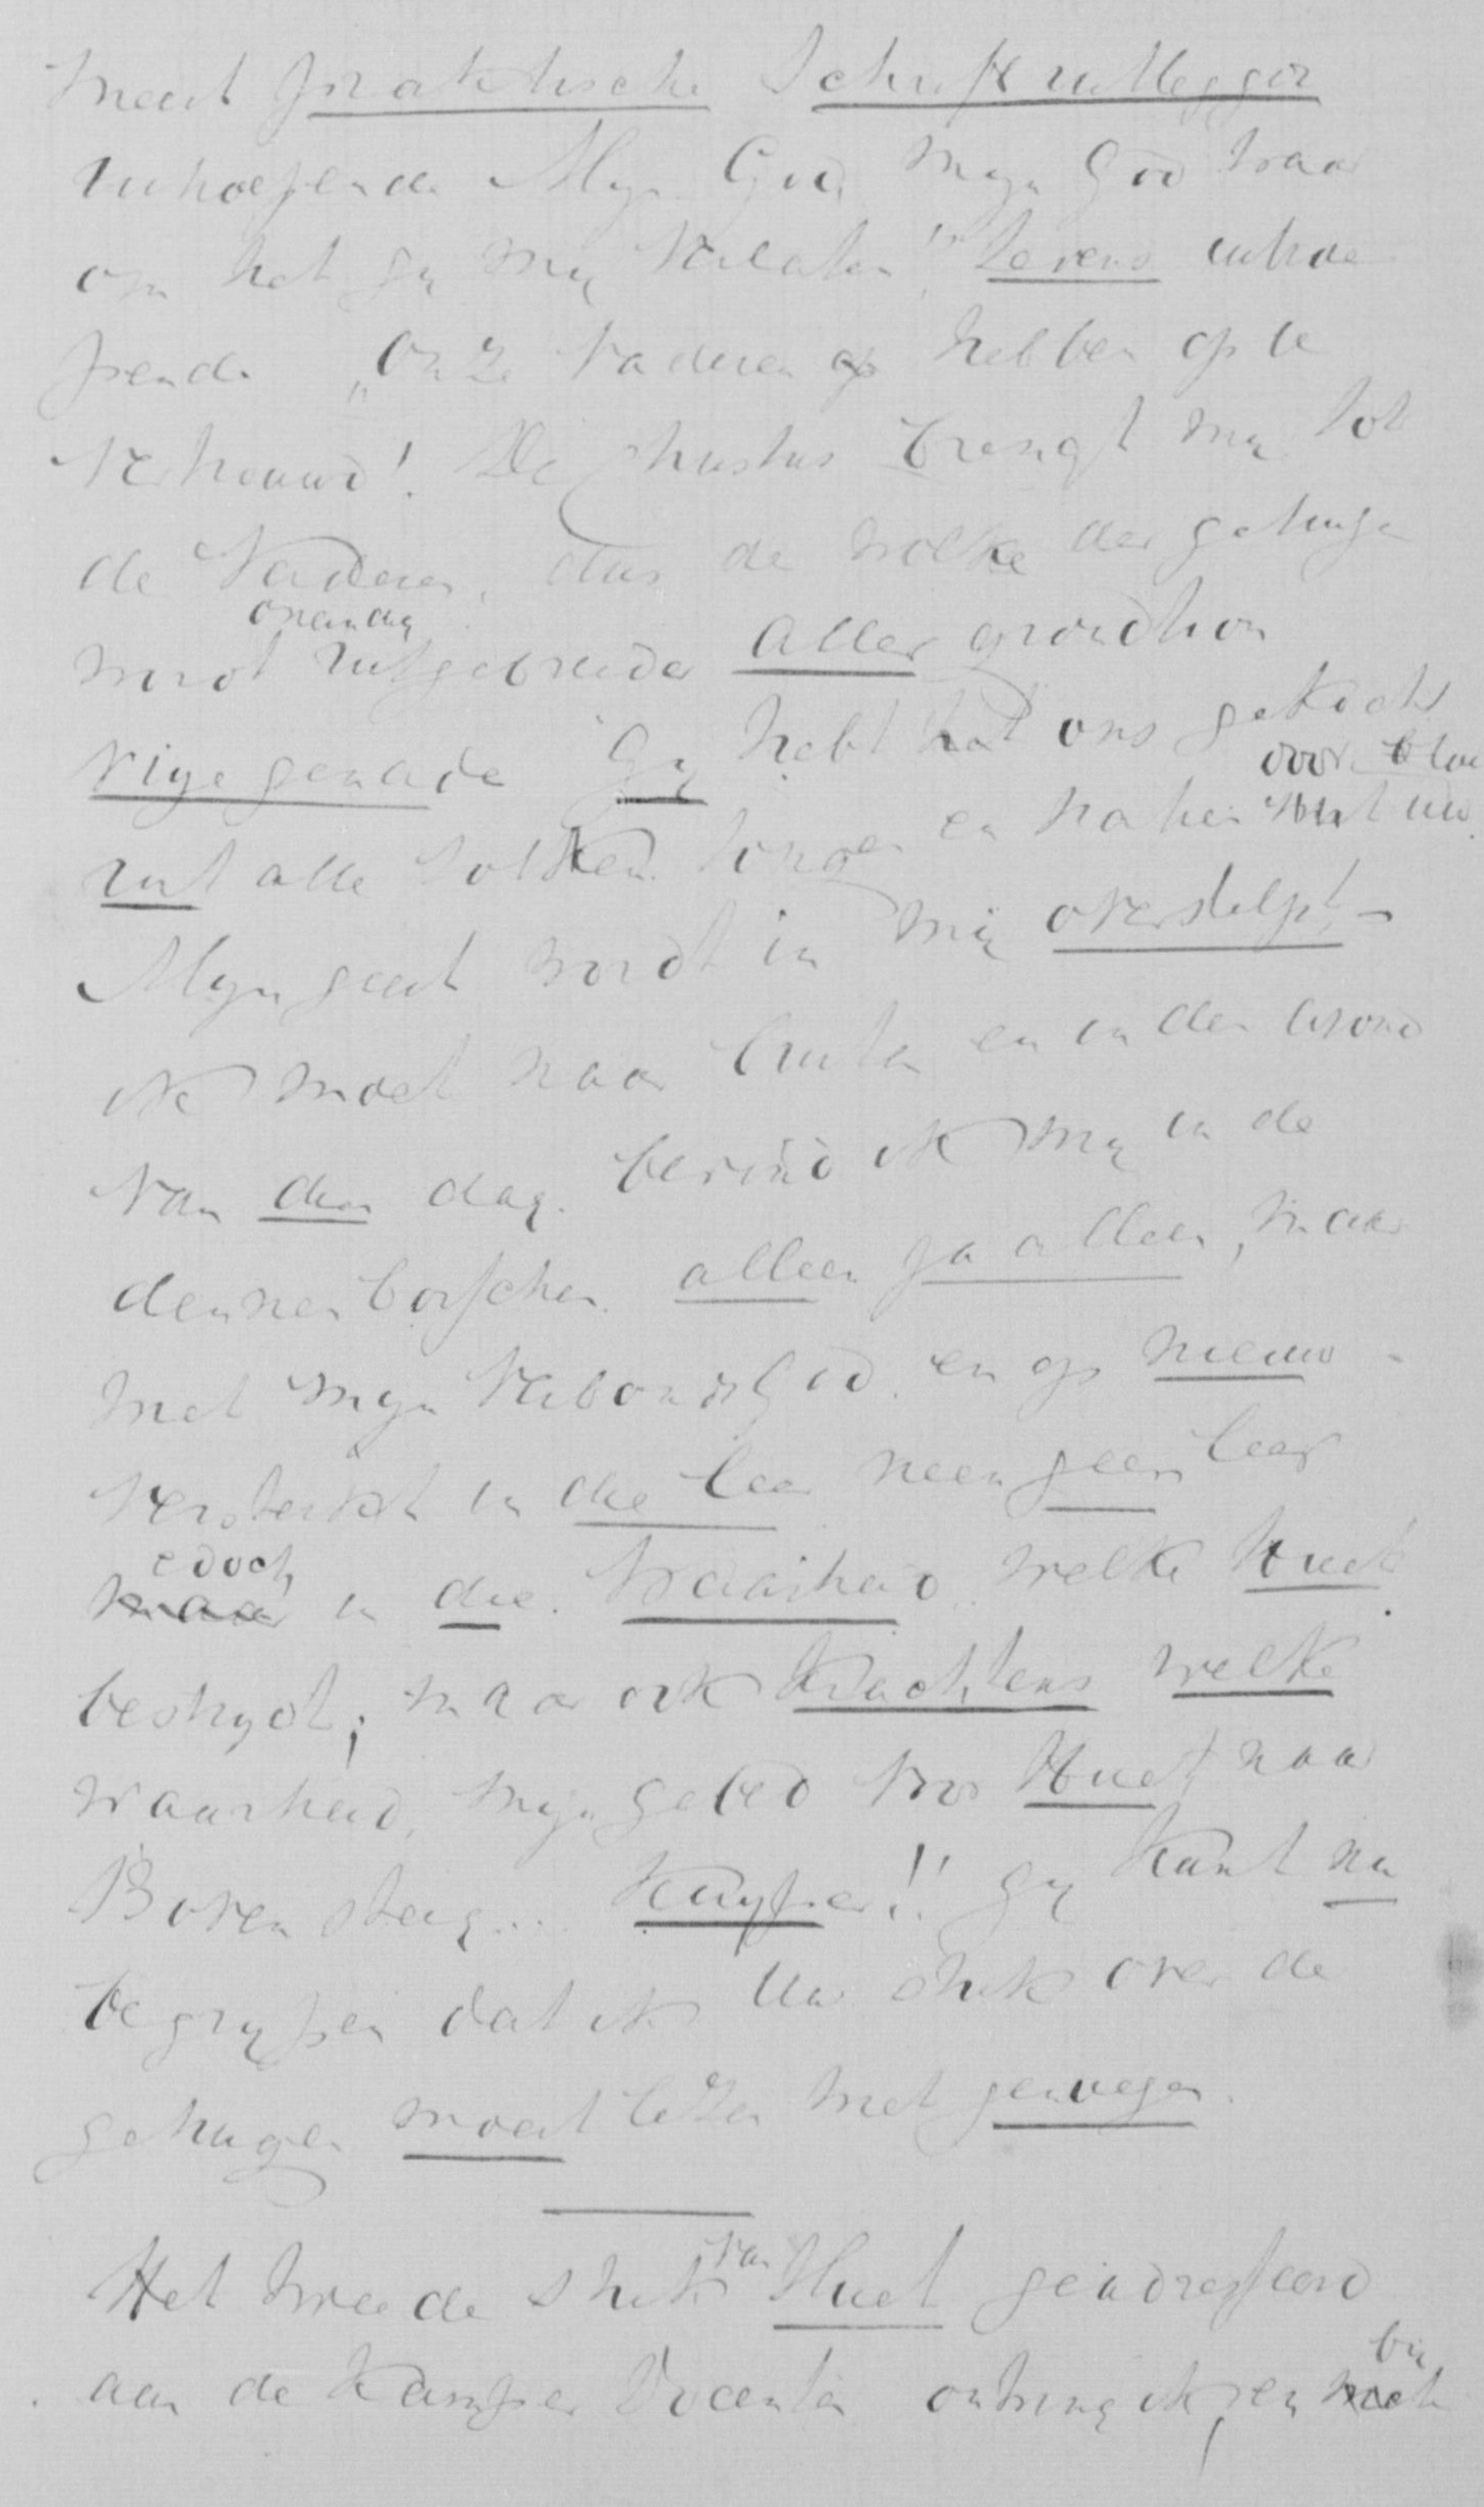 meest praktische Schriftuitlegger
uitroepende Mijn God, mijn God waar
om hebt gij mij verlaten!" Tevens uitroe
pende „Onze Vaderen op hebben op U
vertrouwd! De Christus brengt mij tot
de Vaderen, dus de wolke der getuige
wordt oneindig uitgebreider aller grondtoon
vrije genade Gij hebt het ons gekocht
uit alle volken tongen en natien met uw
door bloe
Mijn geest wordt in mij overstelpt –
ik moet naar buiten en in den avond
van dien dag. bevind ik mij in de
dennenbosschen. alleen ja alleen, maar
met mijn Verbonds God. en op nieuw
versterkt in die leer neen geen leer
maar edoch in die Waarheid welke Huet
bestrijdt; maar ook krachtens welke
waarheid, mijn gebed voor Huet naar
Boven steeg... Kuyper!! gij kunt nu
begrijpen dat ik Uw stuk over de
getuigen moest lezen met genoegen.
Het tweede stuk van Huet geadresseerd
aan de Kamper Docenten ontving ik, en
bij